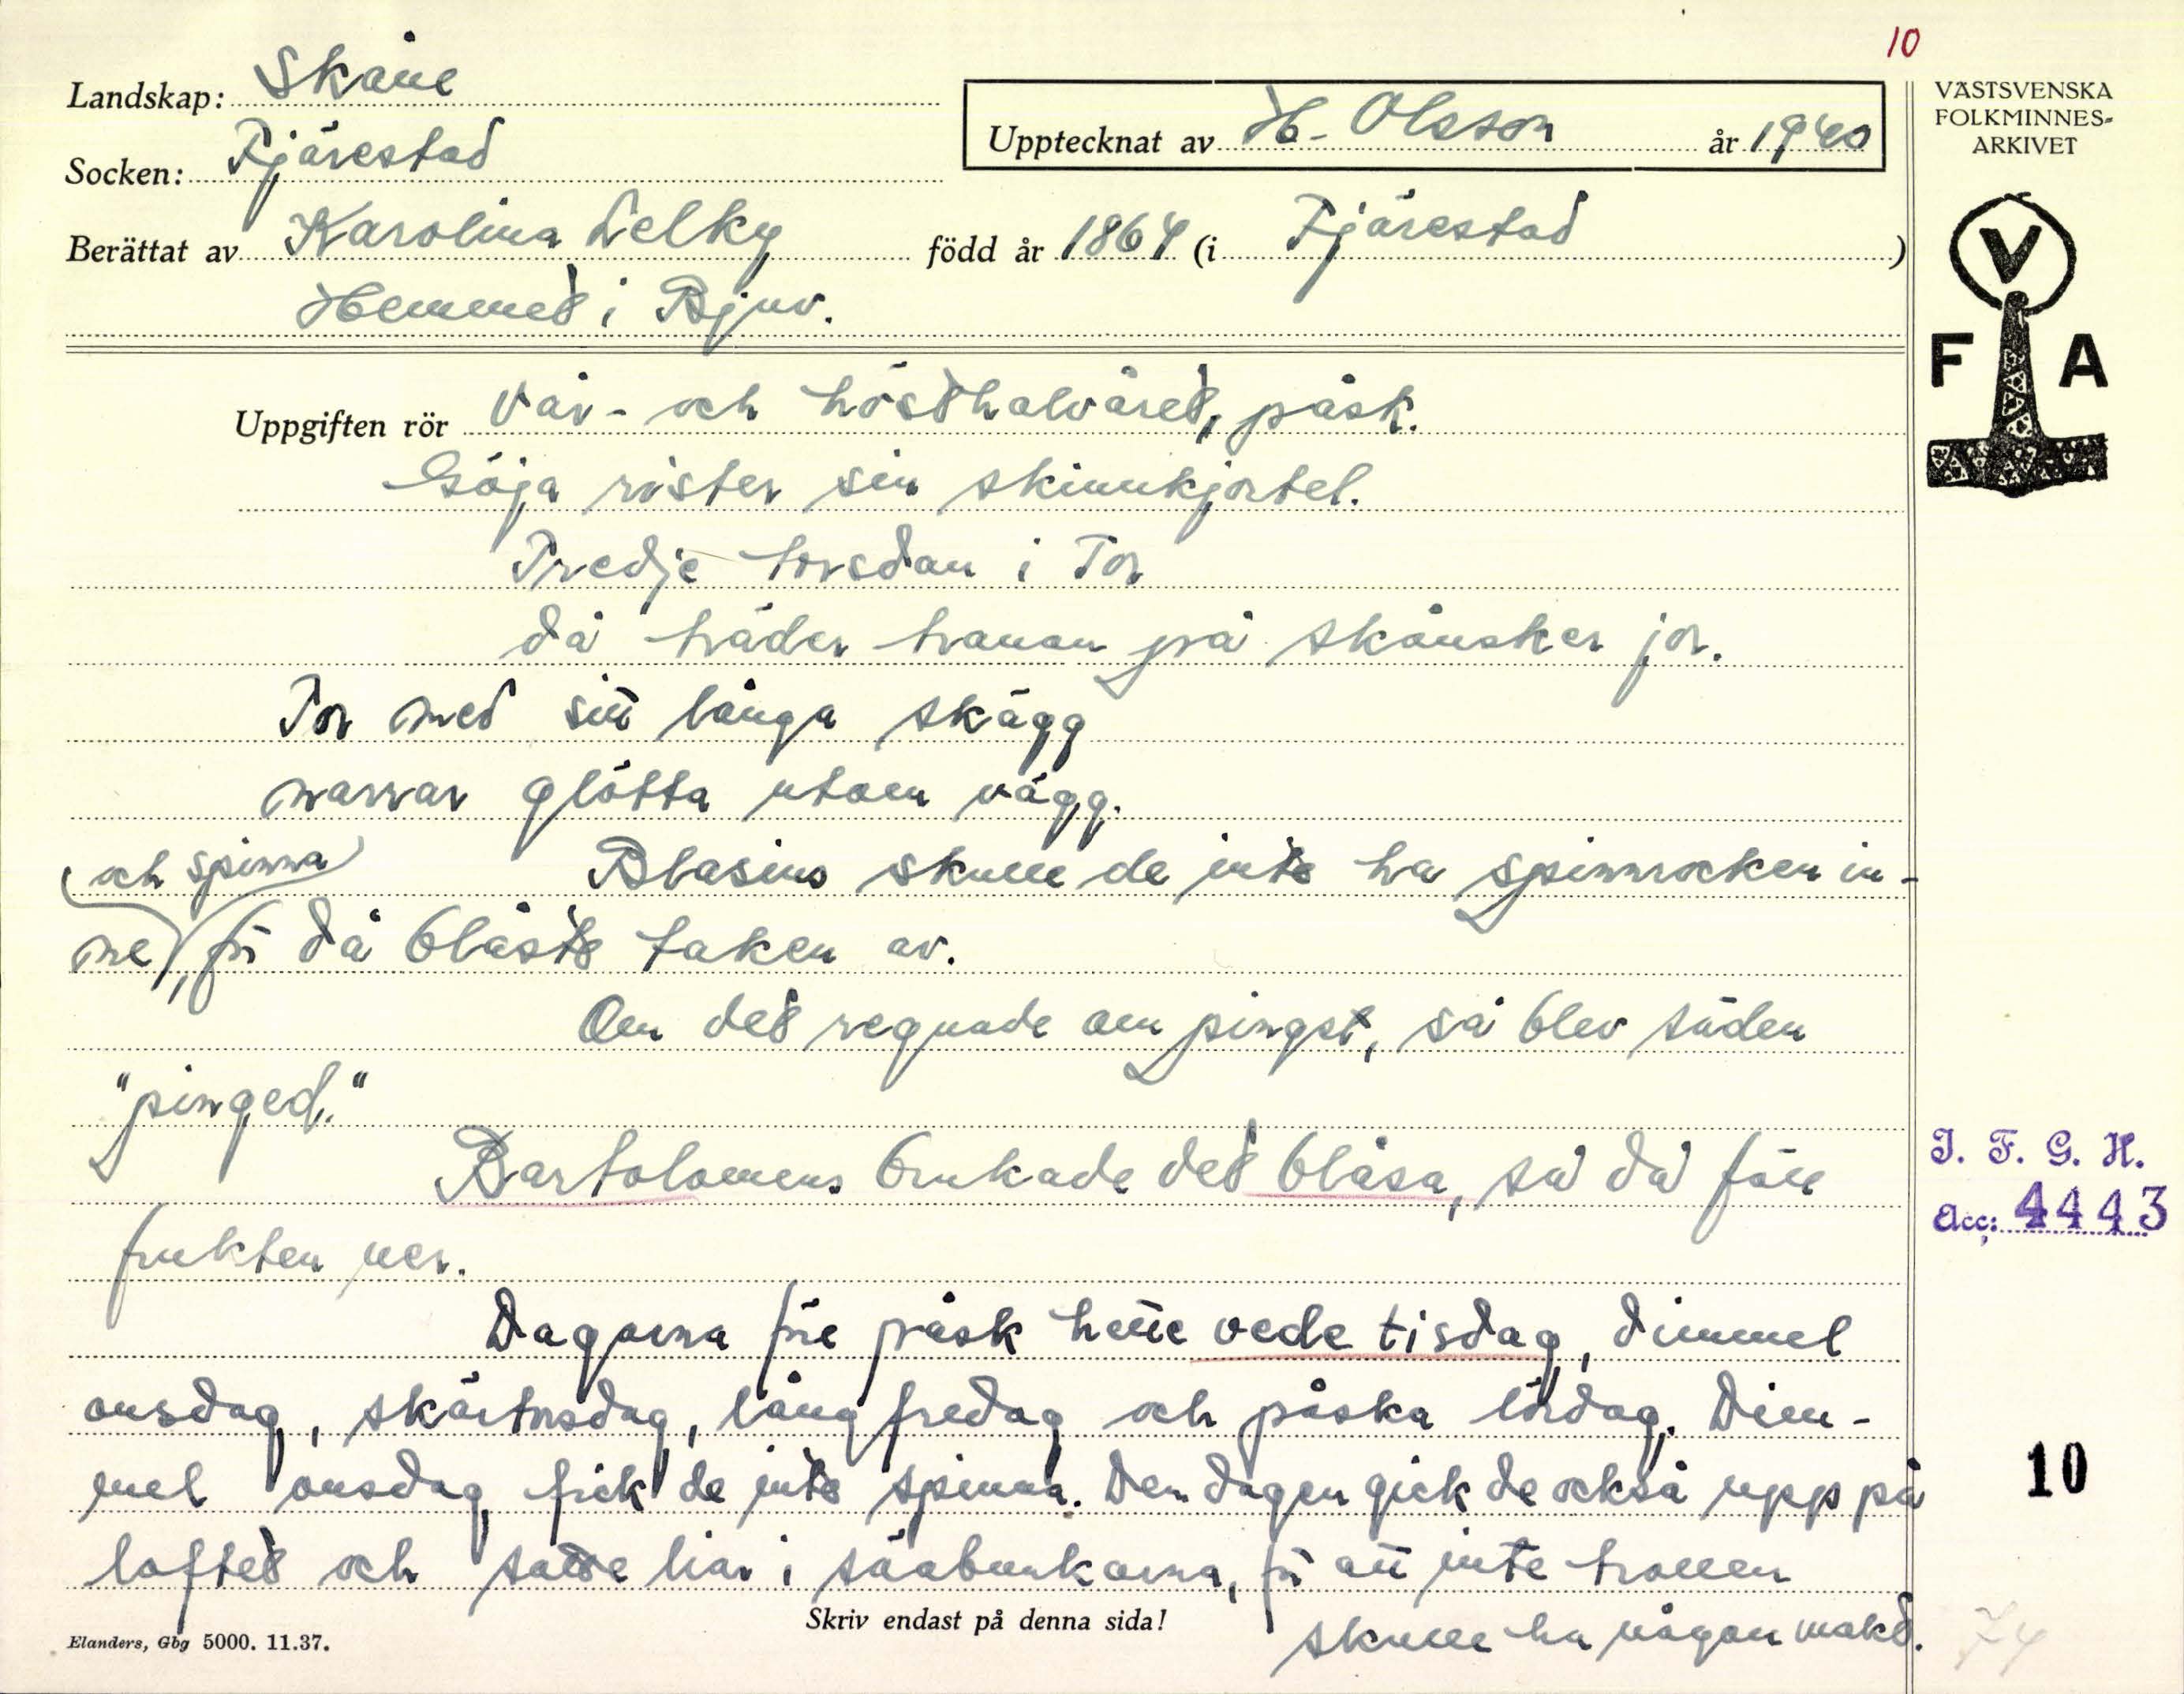 10
Landskap: Skåne
Socken: Fjärestad
Upptecknat av H. Olsson år 1940
Berättat av Karolina Lelky född år 1864 (i Fjärestad)
Hemmet i Bjuv.
VÄSTSVENSKA
FOLKMINNES-
ARKIVET
V
F A
Uppgiften rör Vår- och hösthalvåret, påsk.
Göja rister sin skinnkjortel.
Tredje torsdan i Tor
då träder tranan på skånsker jor.
Tor med sitt långa skägg
narrar glötta utom vägg.
Blasius skulle de inte ha spinnrocken in-
ne (och spinna), för då blåste taken av.
Om det regnade om pingst, så blev säden
"pinged."
Bartolomeus brukade det blåsa, så då föll
frukten ner.
Dagarna före påsk hette vede tisdag, dimmel
onsdag, skärtorsdag, lång fredag och påska lördag. Dim-
mel onsdag fick de inte spinna. Den dagen gick de också upp på
loftet och satte liar i säabunkarna, för att inte trollen
skulle ha någon makt.
Skriv endast på denna sida!
Elanders, Gbg 5000. 11.37.
I. F. G. H.
Acc: 4443
10
74